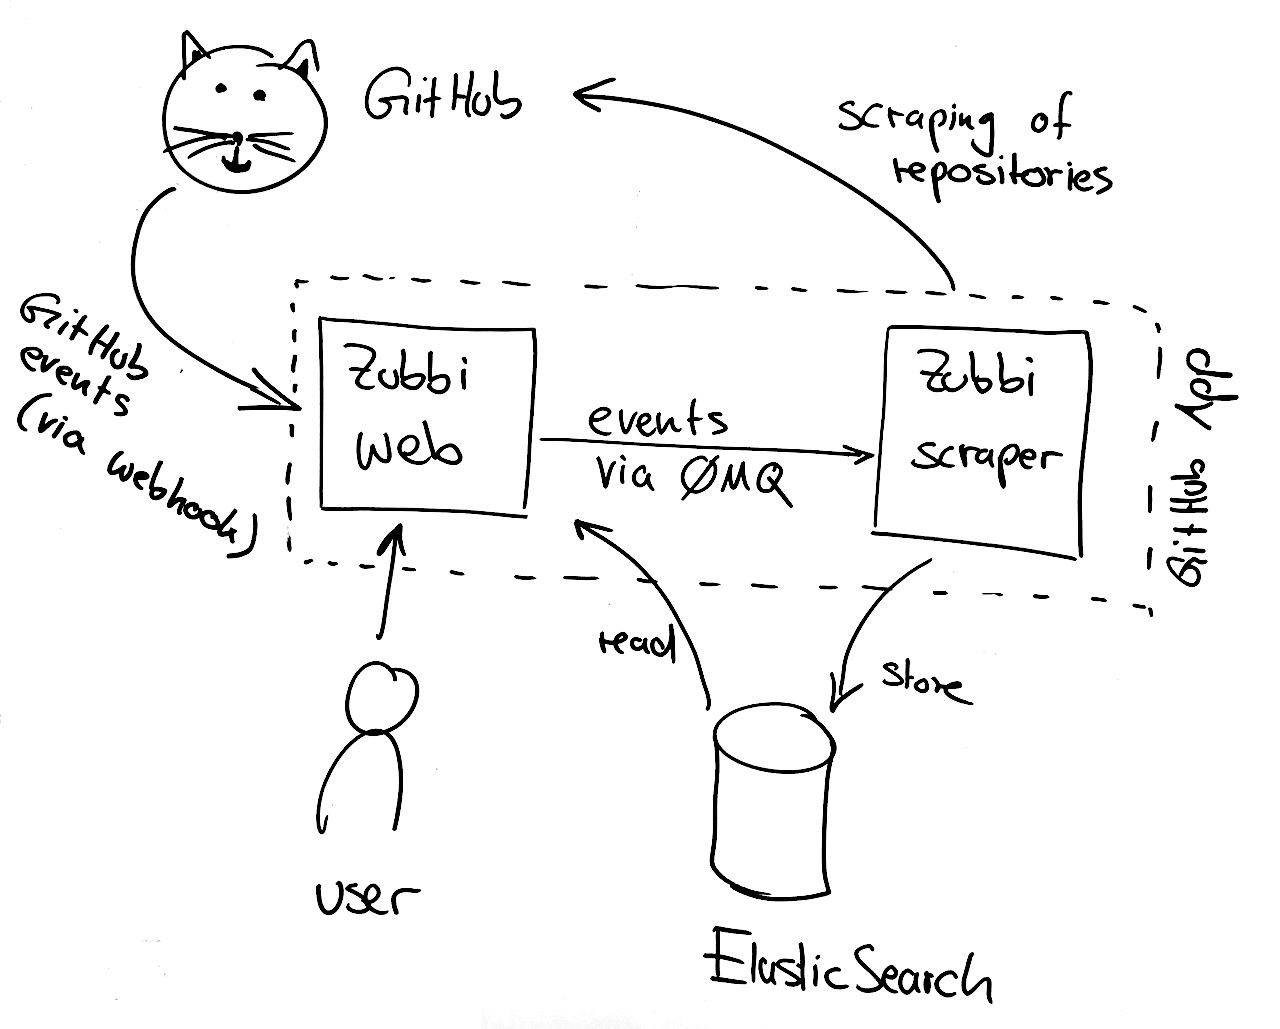 GitHub
scraping of
repositories
GitHub
events
(via webhook)
Zubbi
web
events
via ØMQ
Zubbi
scraper
GitHub App
read
store
user
ElasticSearch